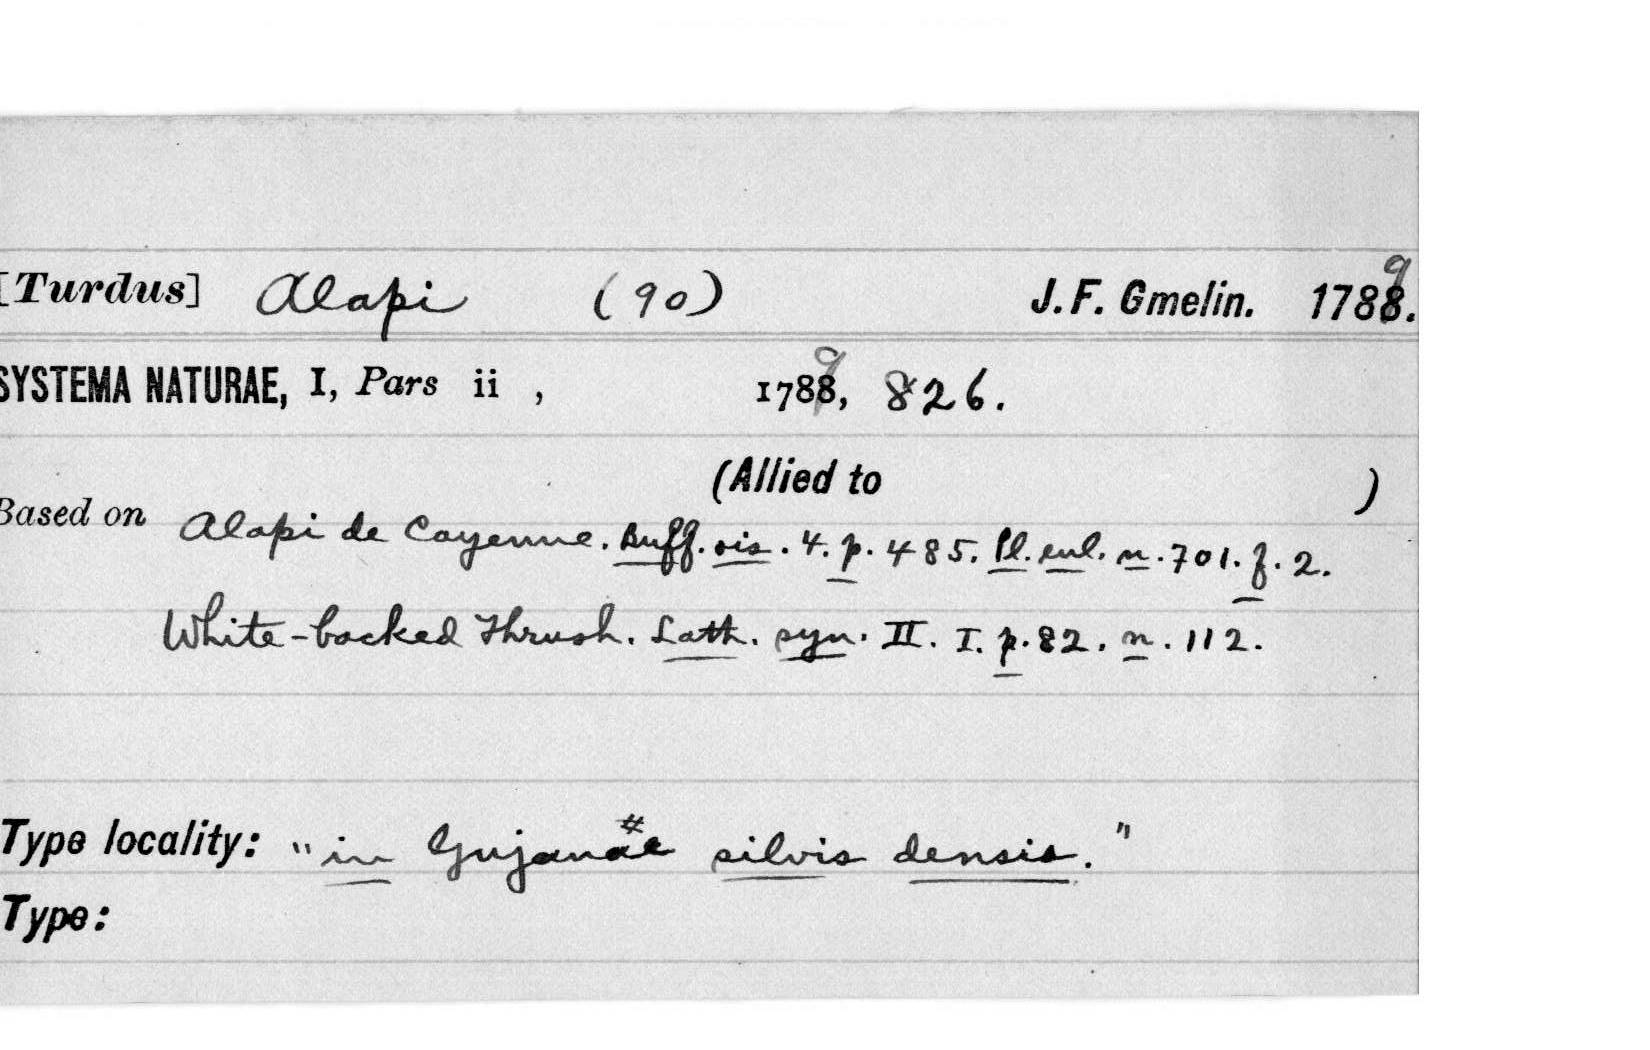 [Turdus] Alapi (90) J. F. Gmelin. 1789.
SYSTEMA NATURAE, I, Pars ii , 1789, 826.
(Allied to )
Based on Alapi de Cayenne. Buff. ois. 4. p. 485. Pl. enl. n. 701. f. 2.
White-backed Thrush. Lath. syn. II. I. p. 82. n. 112.
Type locality: "in Gujanae # silvis densis."
Type: